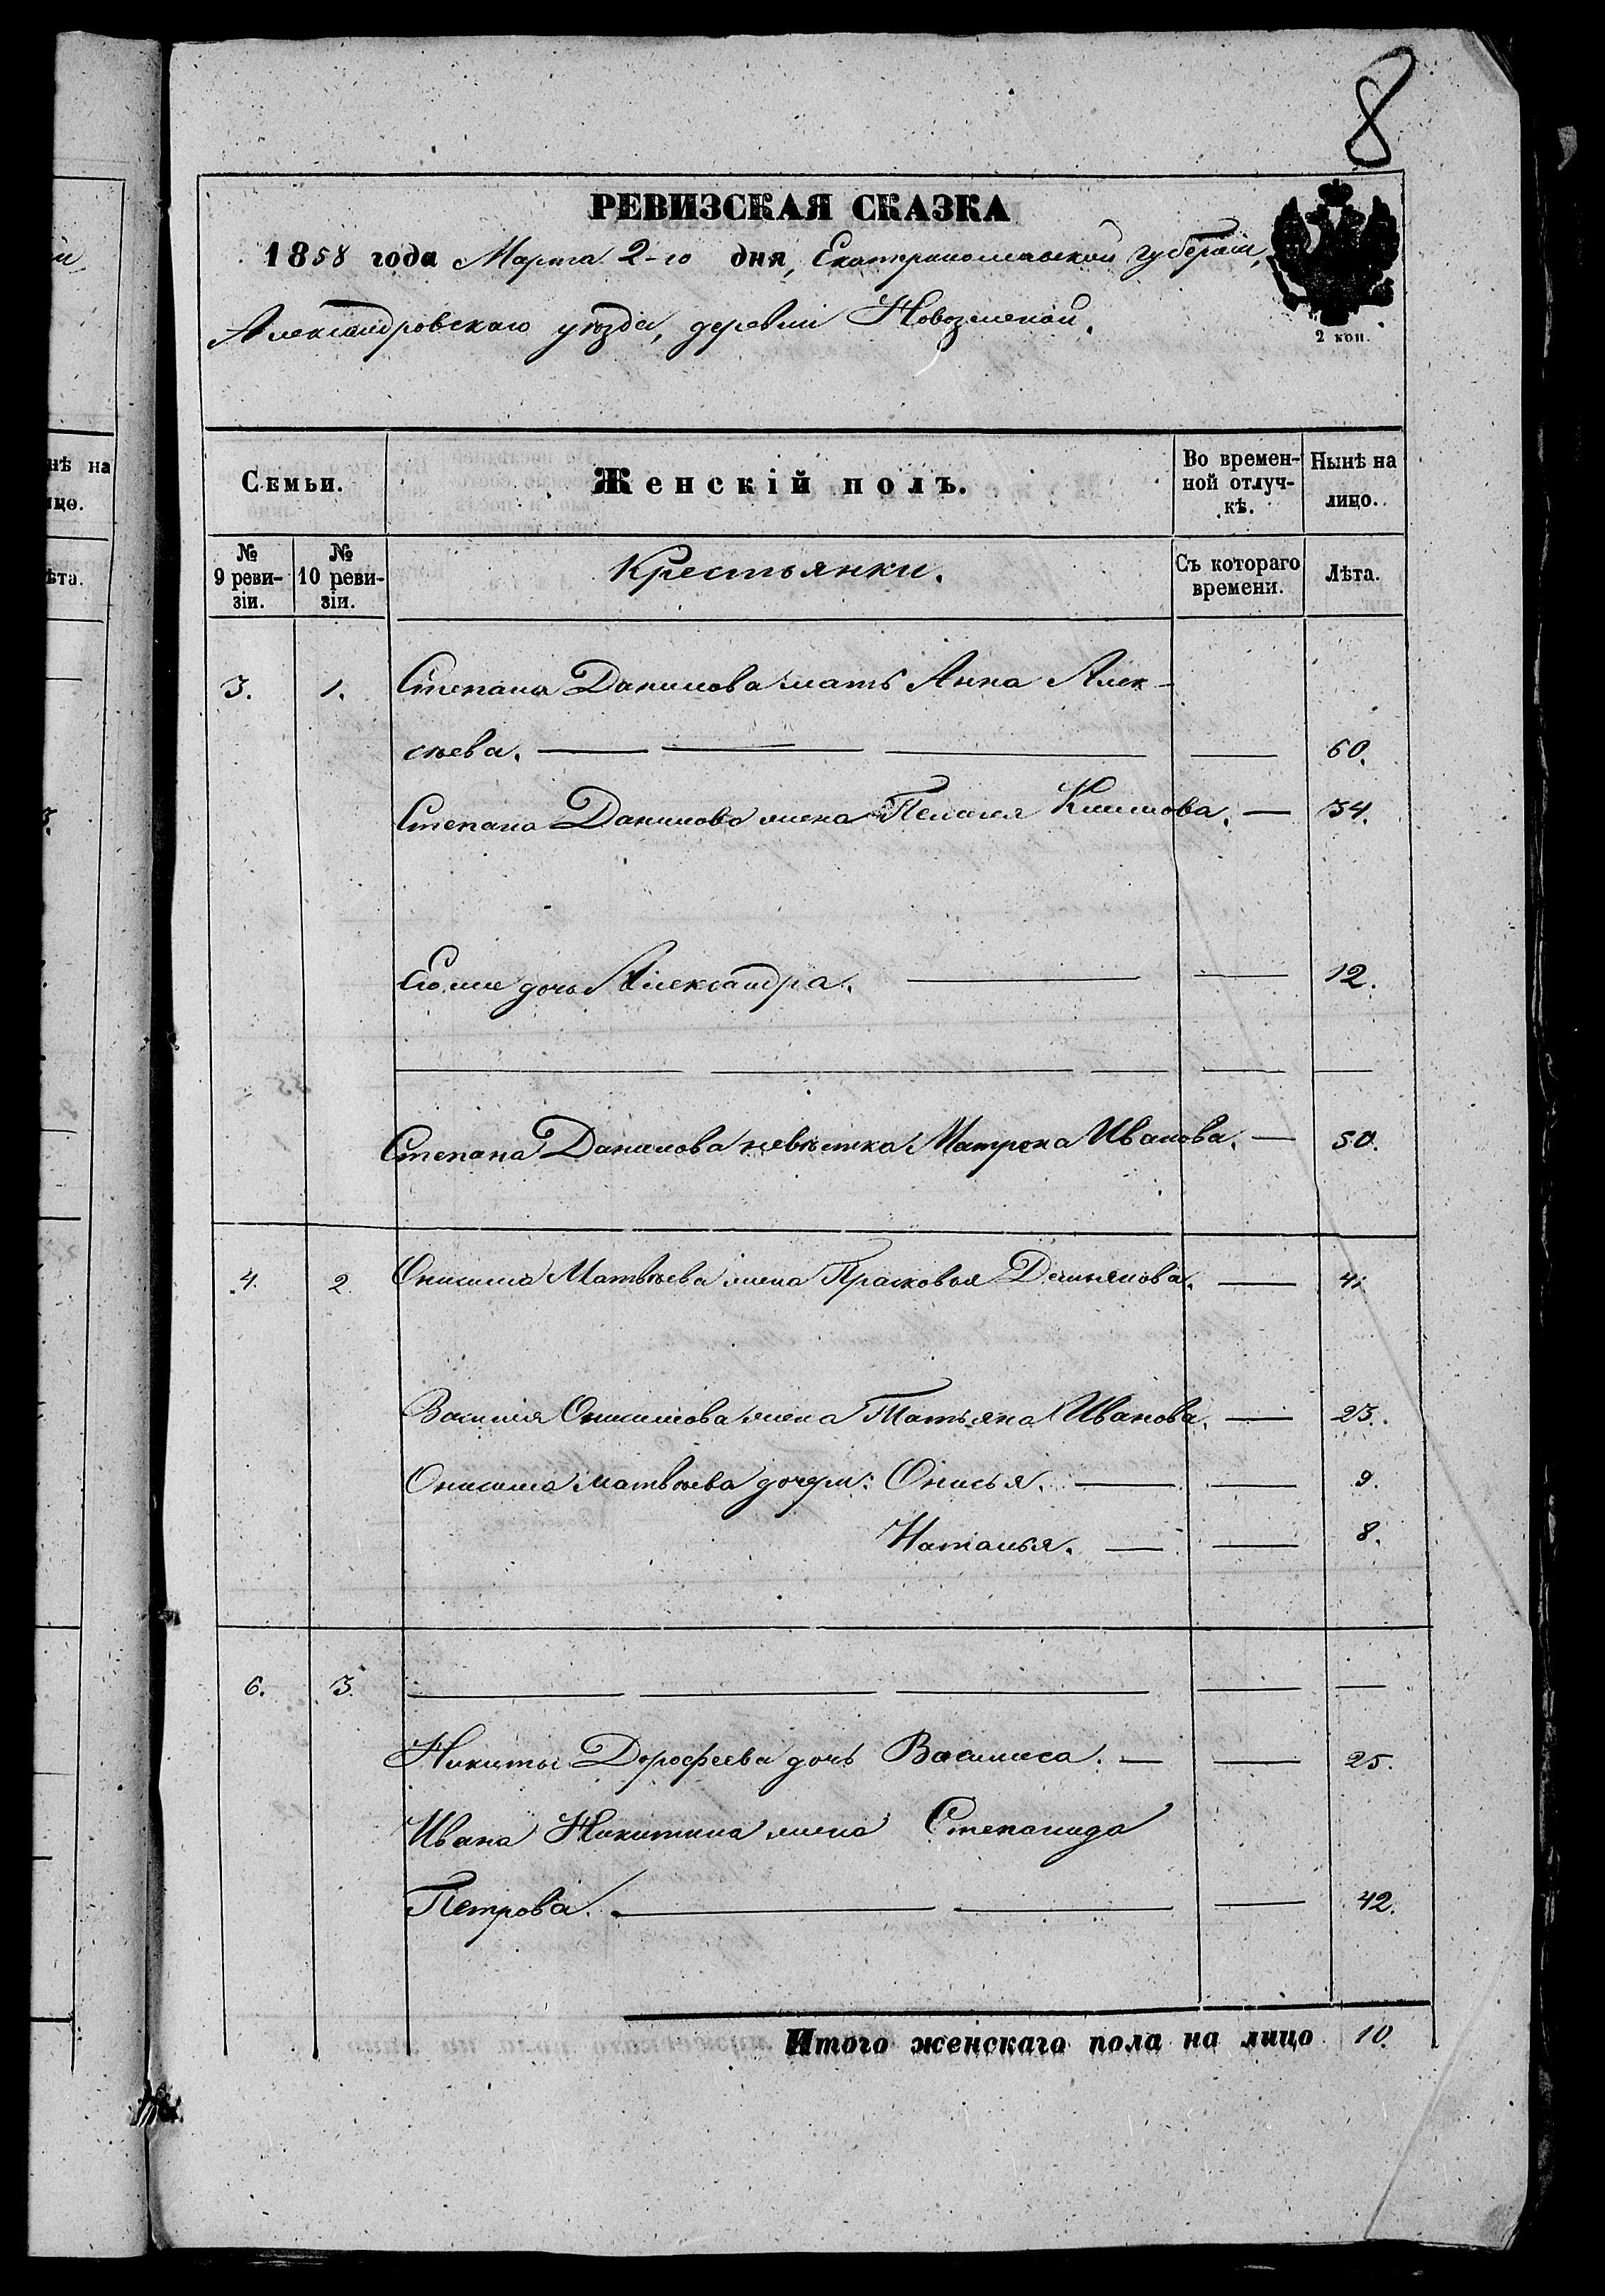 8
РЕВИЗСКАЯ СКАЗКА
1858 года Марта 2-го дня, Екатеринославской губерніи,
Александровскаго уѣзда, деревни
2 коп.
нѣ на
ицо.
ѣта.
Семьи.
Женскій полъ.
Во времен-
ной отлуч-
кѣ.
Нынѣ на
лицо.
№
9 реви-
зіи.
№
10 реви-
зіи.
Крестьянки.
Съ котораго
времени.
Лѣта.
3. 1. Степана Данилова мать Анна Алек-
сѣева. 60.
Степана Данилова жена Пелагея Климова. 34.
Его же дочь Александра. 12.
Степана Данилова невѣстка Матрена Иванова. 50.
4. 2. Онисима Матвѣева жена Прасковья Демьянова.
Василия Онисимова жена Татьяна Иванова. 23.
Онисима Матвѣева дочери: Онисья. 9.
Наталья. 8.
6. 3.
Никиты Дорофеева дочь Василиса. 25.
Ивана Никитина жена Степанида
Петрова. 42.
Итого женскаго пола на лицо 10.